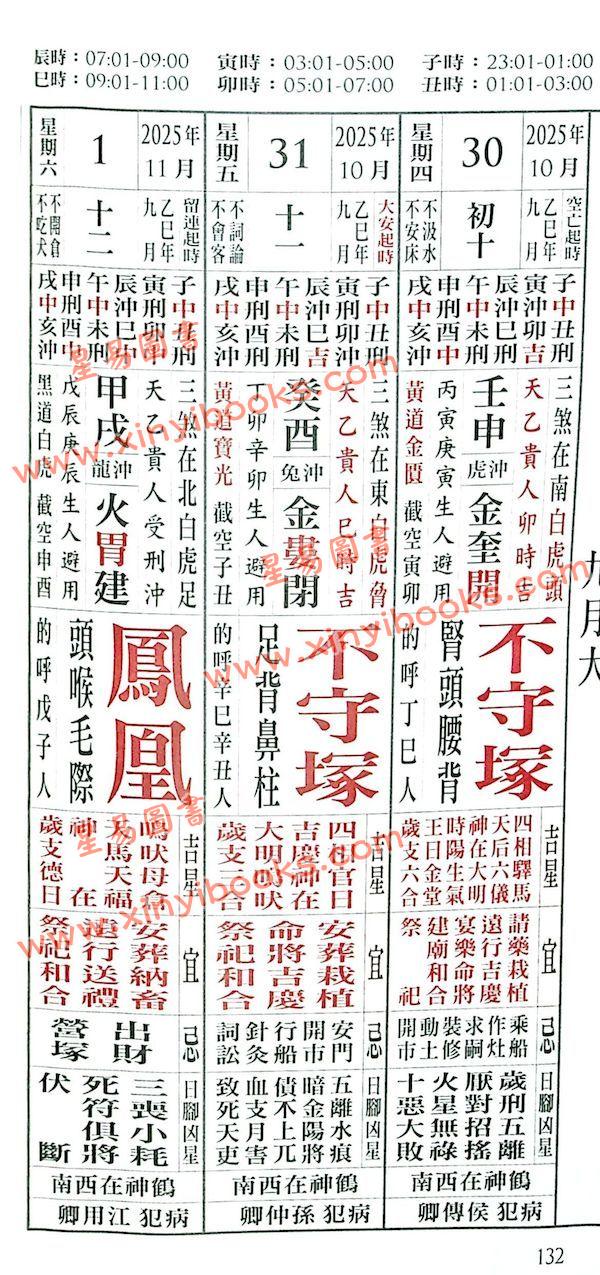 辰時：07:01-09:00 寅時：03:01-05:00 子時：23:01-01:00
巳時：09:01-11:00 卯時：05:01-07:00 丑時：01:01-03:00
九月大
2025年
10月
30
星期四
空亡起時
乙巳年
九月
初十
不汲水
不安床
子中丑刑
寅沖卯吉
辰刑巳刑
午中未刑
申刑酉中
戌中亥沖
三煞在南白虎頭
天乙貴人卯時吉
壬申沖虎金奎開
丙寅庚寅生人避用
黃道金匱 截空寅卯
不守塚
腎頭腰背
的呼丁巳人
吉星
四相驛馬
天后六儀
神在大明
時陽生氣
王日金堂
歲支六合
宜
請藥栽植
遠行吉慶
宴樂命將
建廟和合
祭祀
忌
乘船
作灶
求嗣
裝修
動土
開市
日腳凶星
歲刑五離
厭對招搖
火星無祿
十惡大敗
鶴神在西南
病犯侯傳卿
2025年
10月
31
星期五
大安起時
乙巳年
九月
十一
不詞論
不會客
子中丑刑
寅刑卯沖
辰沖巳吉
午中未刑
申刑酉刑
戌中亥沖
三煞在東白虎脅
天乙貴人巳時吉
癸酉沖兔金婁閉
丁卯辛卯生人避用
黃道寶光 截空子丑
不守塚
足背鼻柱
的呼辛巳辛丑人
吉星
四相官日
吉慶神在
大明鳴吠
歲支三合
宜
安葬栽植
命將吉慶
祭祀和合
忌
安門
開市
行船
針灸
詞訟
日腳凶星
五離水痕
暗金陽將
債不上兀
血支月害
致死天吏
鶴神在西南
病犯孫仲卿
2025年
11月
1
星期六
留連起時
乙巳年
九月
十二
不開倉
不吃犬
子中丑刑
寅刑卯中
辰沖巳中
午中未刑
申刑酉中
戌中亥沖
三煞在北白虎足
天乙貴人受刑沖
甲戌沖龍火胃建
戊辰庚辰生人避用
黑道白虎 截空申酉
鳳凰
頭喉毛際
的呼戊子人
吉星
鳴吠母倉
天馬天福
神在
歲支德日
宜
安葬納畜
遠行送禮
祭祀和合
忌
出財
營塚
日腳凶星
三喪小耗
死符俱將
伏斷
鶴神在西南
病犯江用卿
132
星易圖書
www.xinyibooks.com
星易圖書
www.xinyibooks.com
星易圖書
www.xinyibooks.com